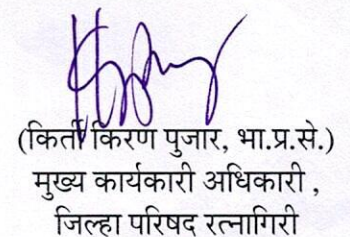 (किर्ती किरण पुजार, भा.प्र.से.)
मुख्य कार्यकारी अधिकारी ,
जिल्हा परिषद रत्नागिरी